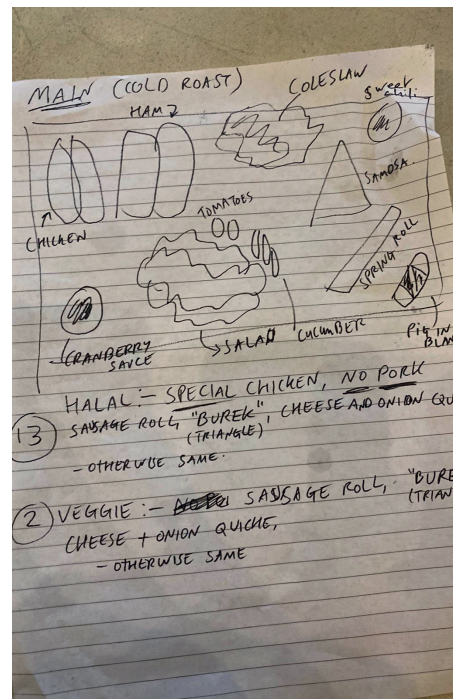 MAIN (COLD ROAST)
HAM
COLESLAW
Sweet
chili
CHICKEN
TOMATOES
SAMOSA.
SPRING ROLL
CRANBERRY
SAUCE
SALAD
CUCUMBER
PIG IN
BLAN
HALAL:- SPECIAL CHICKEN, NO PORK
13 SAUSAGE ROLL, "BUREK", CHEESE AND ONION QU
(TRIANGLE)
- OTHERWISE SAME.
2 VEGGIE:- SAUSAGE ROLL, "BURE
(TRIAN
CHEESE + ONION QUICHE,
- OTHERWISE SAME